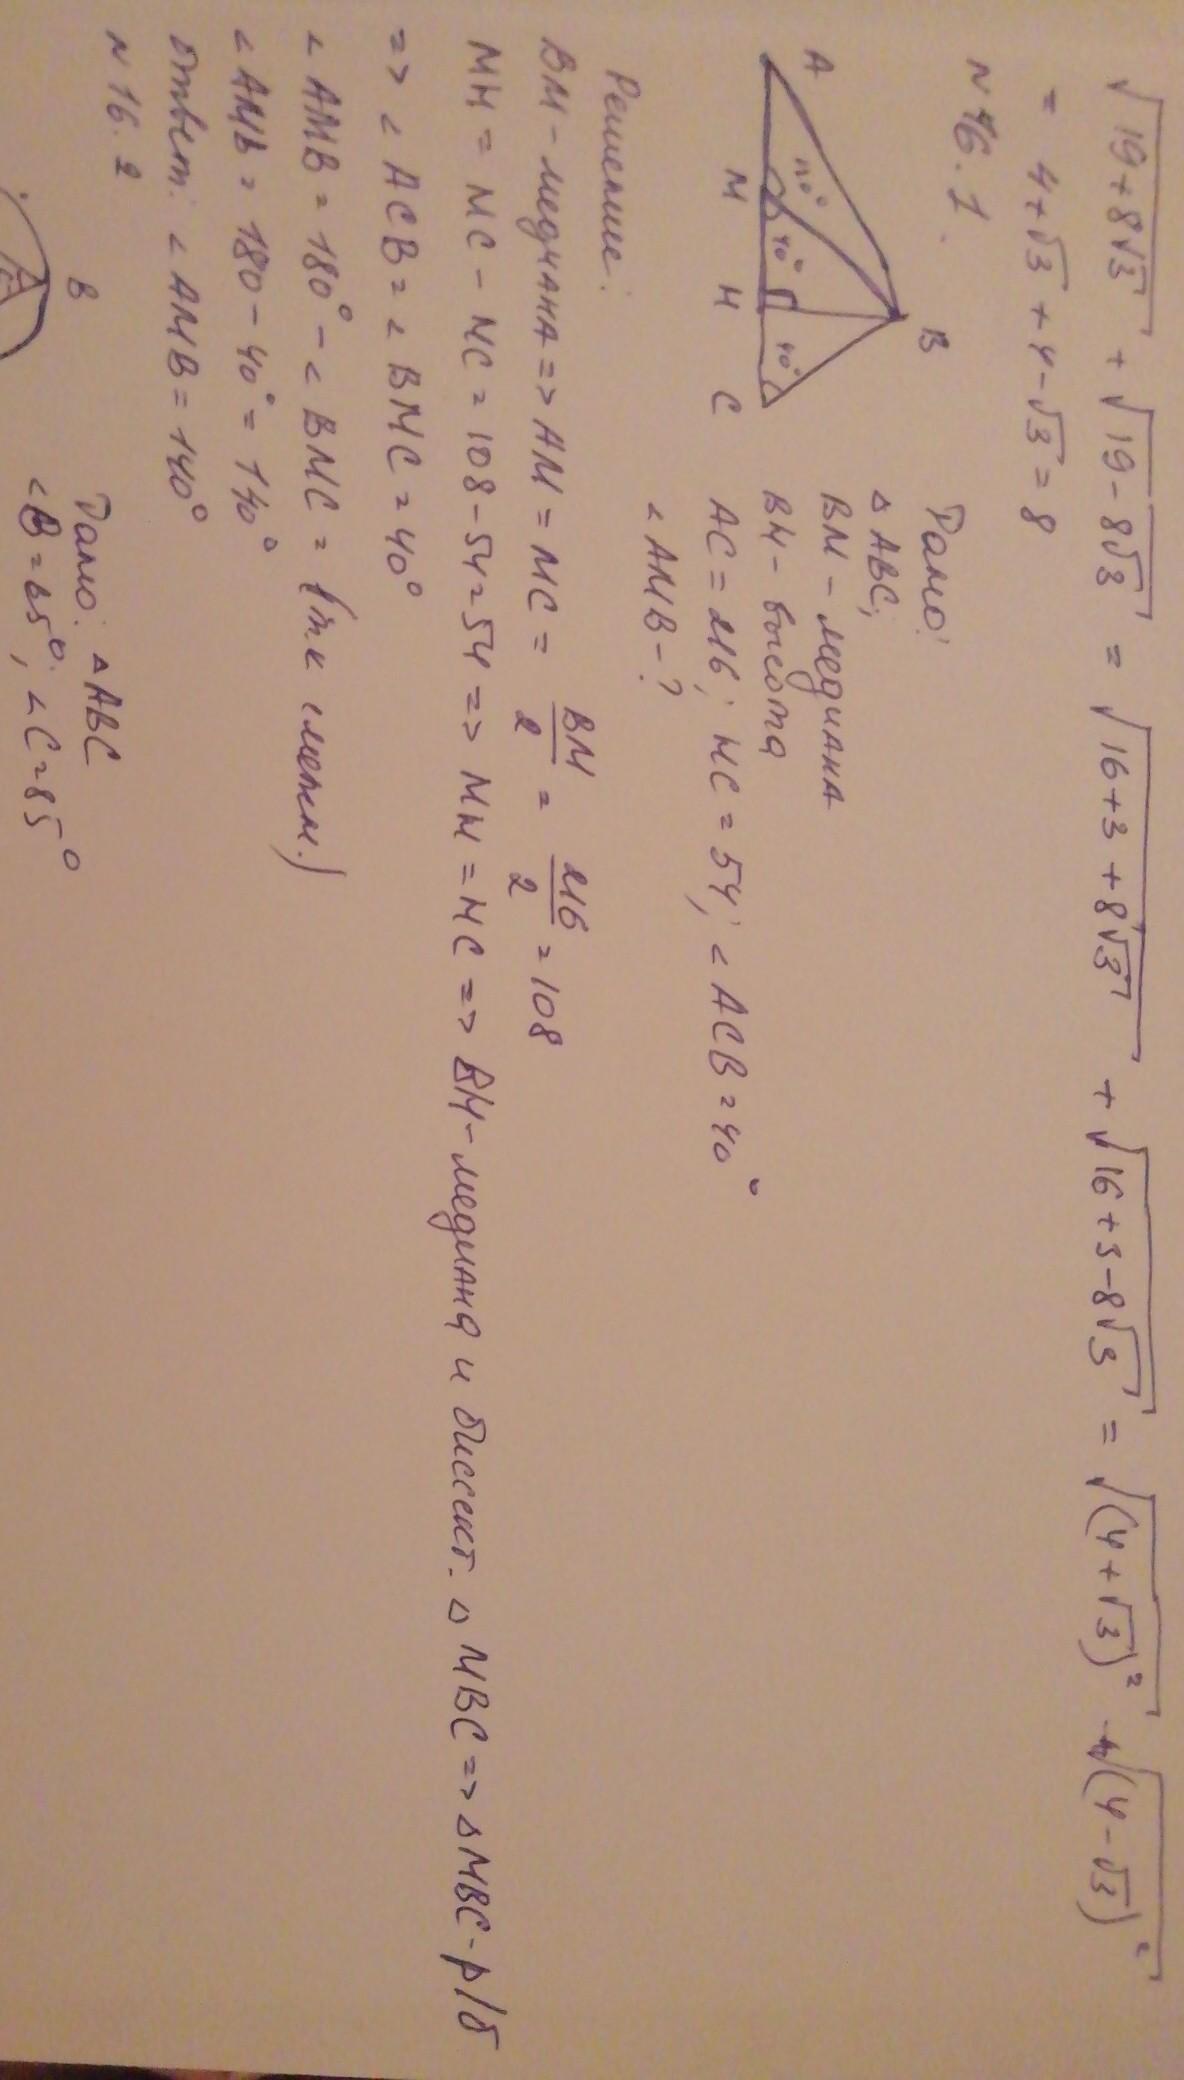 √19+8√3 + √19-8√3 = √16+3+8√3 + √16+3-8√3 = √(4+√3)² + √(4-√3)²
= 4+√3 + 4-√3 = 8
N 16.1.
A B M H C 110° 40° 40°
Дано:
△ABC;
BM - медиана
BH - высота
AC = 216; HC = 54; <ACB = 40°
<AMB - ?
Решение:
BM - медиана => AM = MC = BM/2 = 216/2 = 108
MH = MC - HC = 108 - 54 = 54 => MH = HC => BH - медиана и биссект. △MBC => △MBC - р/б
=> <ACB = <BMC = 40°
<AMB = 180° - <BMC = (т.к смежн.)
<AMB = 180 - 40° = 140°
Ответ: <AMB = 140°
N 16.2
B
Дано: △ABC
<B = 65°; <C = 85°